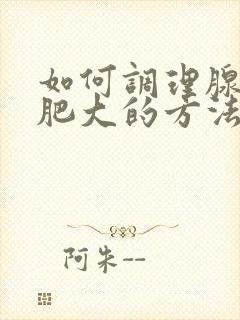 如何調理腺
肥大的方法
阿朱--